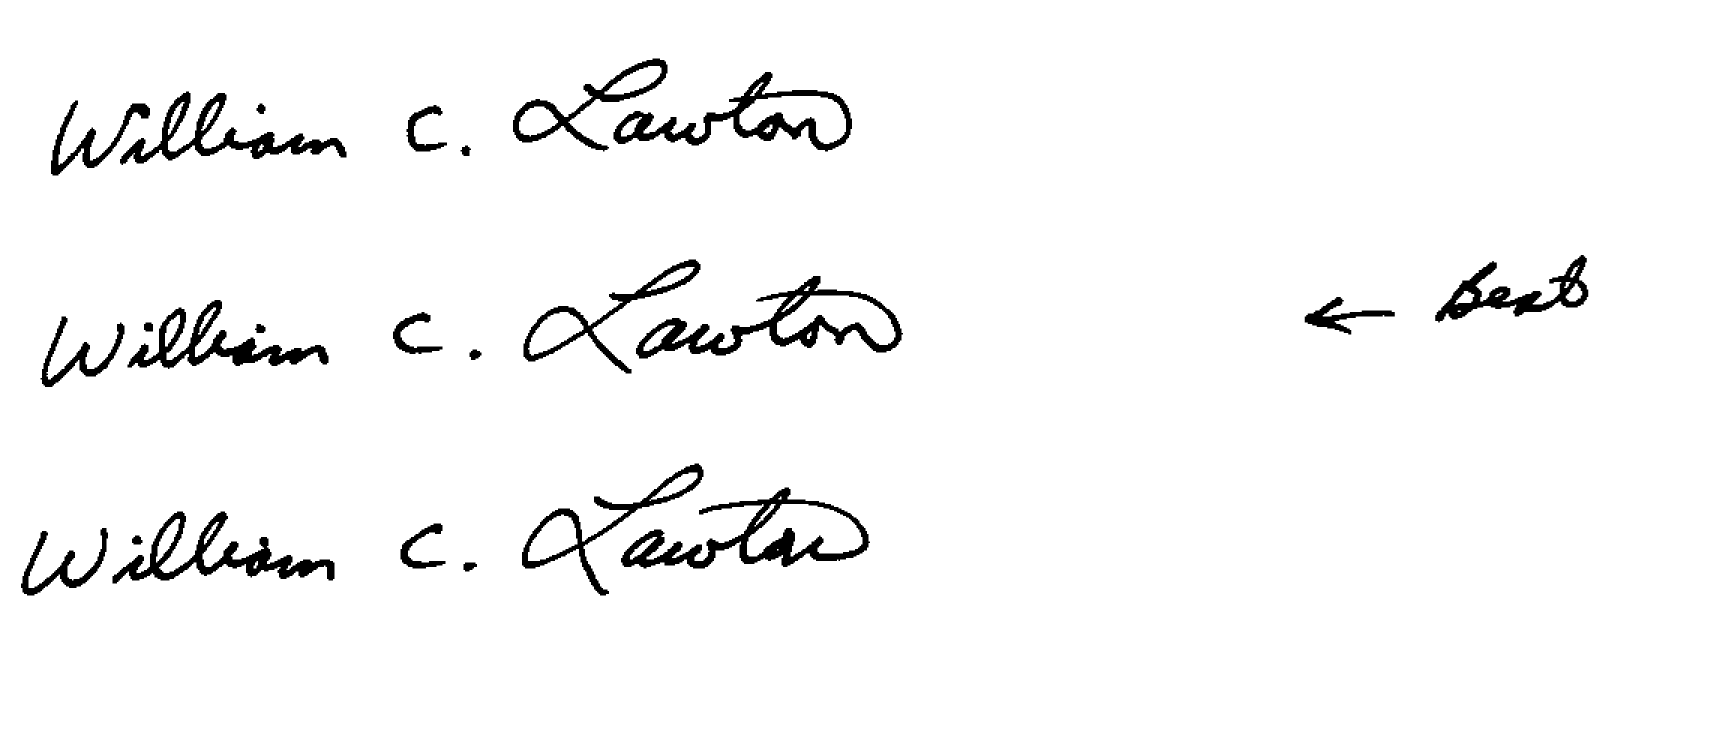 William C. Lawton
William C. Lawton ← Best
William C. Lawton